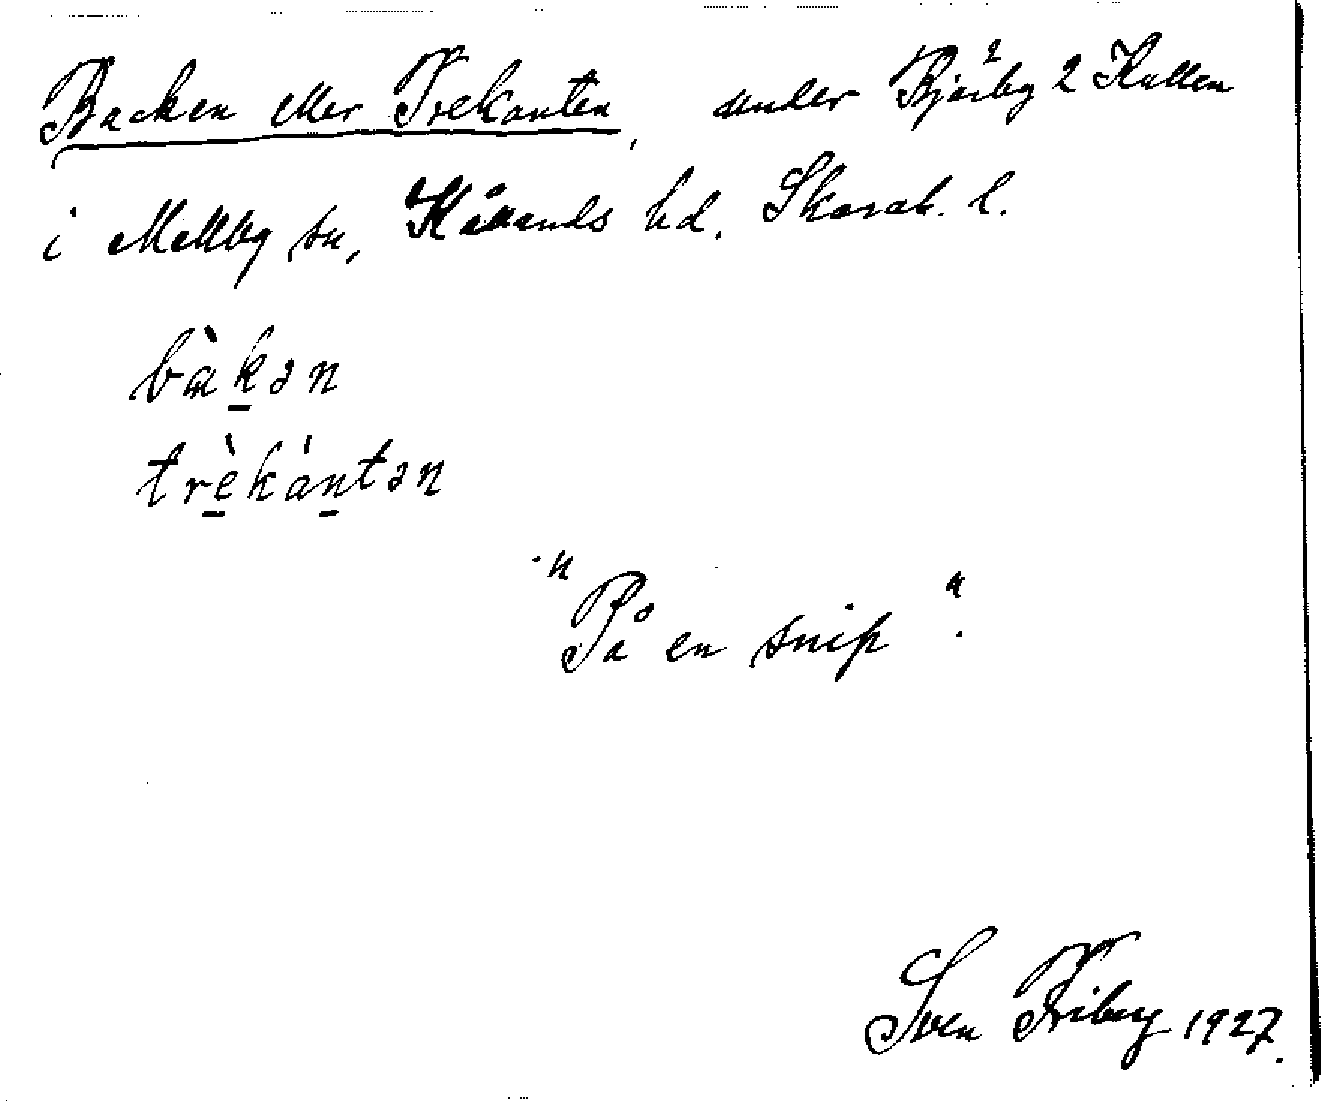 Backen eller Trekanten, under Bjärby 2 Kullen
i Mellby sn, Kållands hd. Skarab. l.
bàkən
trèkántən
"På en snip".
Sven Friberg 1927.